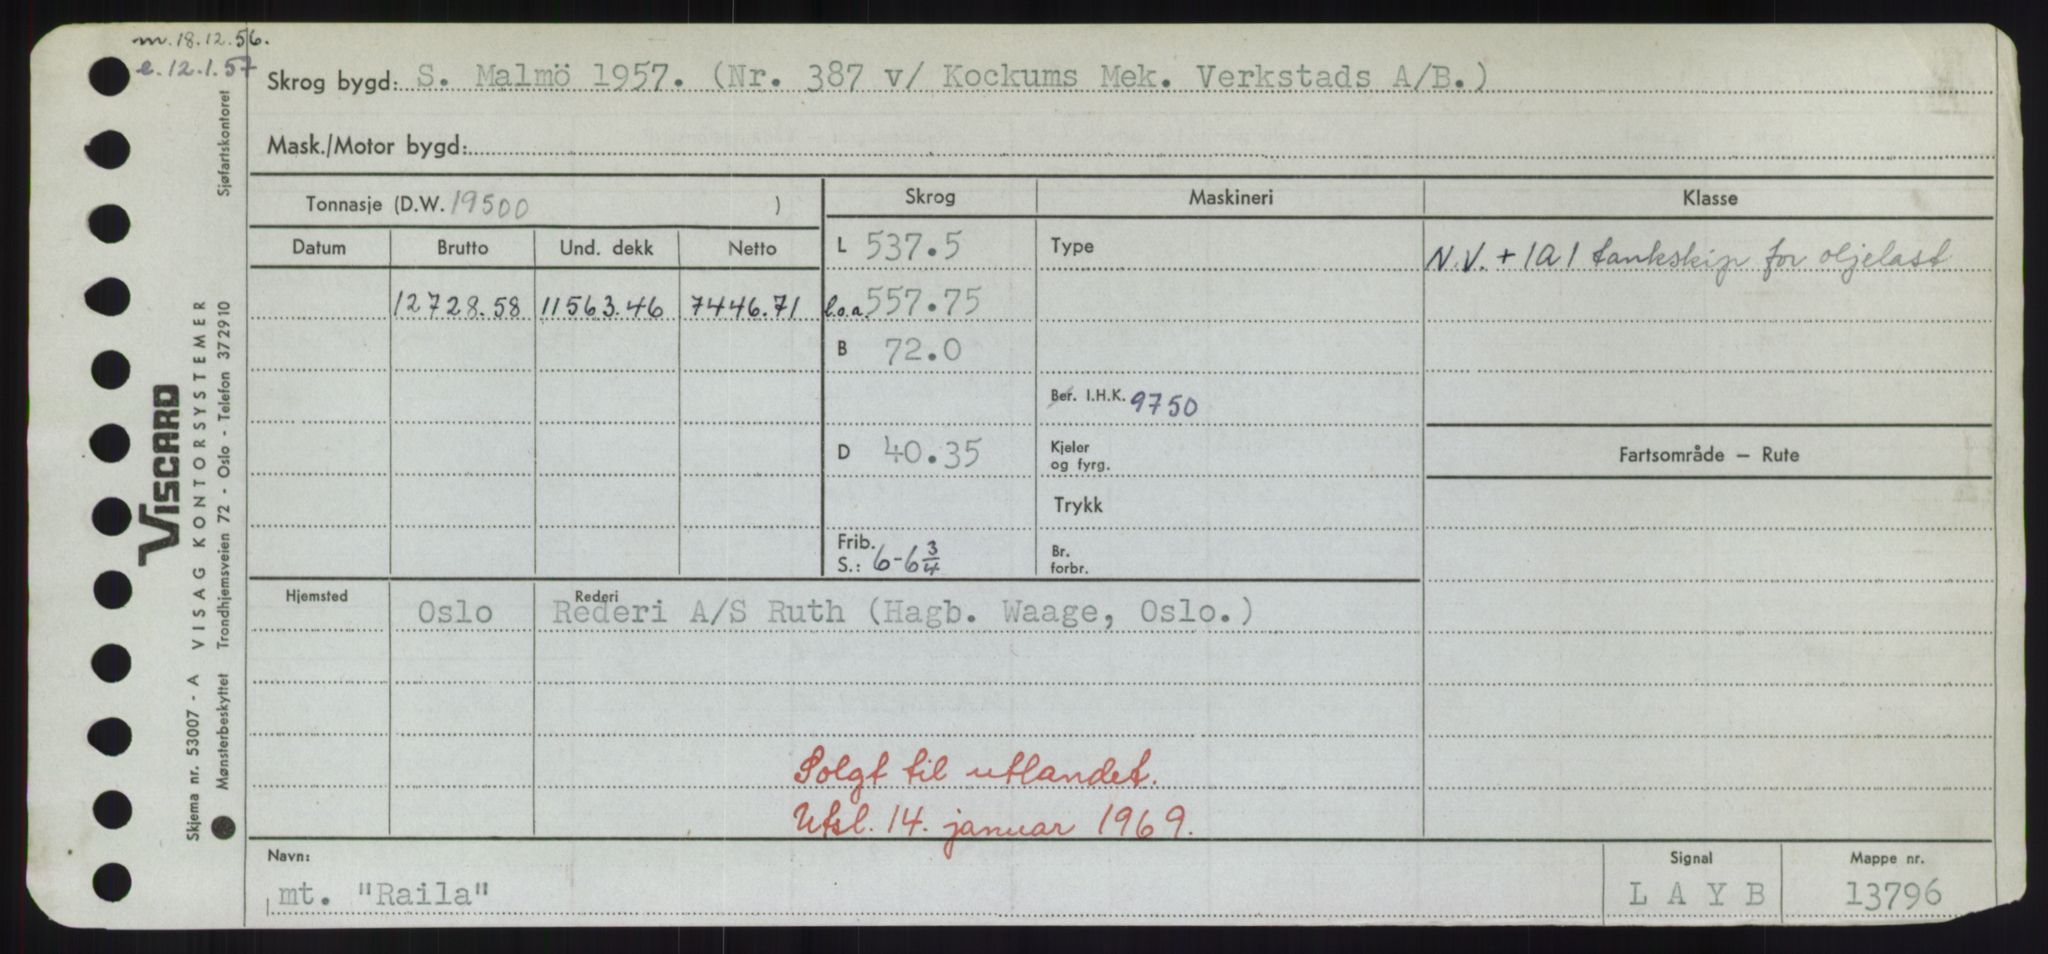 m. 18.12.56.
e. 12.1.57
Skrog bygd: S. Malmö 1957. (Nr. 387 v/ Kockums Mek. Verkstads A/B.)
Mask./Motor bygd:
Tonnasje (D.W. 19500 )
Skrog Maskineri Klasse
Datum Brutto Und. dekk Netto
L 537.5 Type N.V. + 1A1 tankskip for oljelast
12728.58 11563.46 7446.71 l.o.a. 557.75
B 72.0
Bef. I.H.K. 9750
D 40.35 Kjeler og fyrg. Fartsområde – Rute
Trykk
Frib. S.: 6-6 3/4 Br. forbr.
Hjemsted Rederi
Oslo Rederi A/S Ruth (Hagb. Waage, Oslo.)
Solgt til utlandet.
Utsl. 14. januar 1969.
Navn: Signal Mappe nr.
mt. "Raila" L A Y B 13796
VISCARD
Skjema nr. 53007 - A VISAG KONTORSYSTEMER
Mønsterbeskyttet Trondhjemsveien 72 - Oslo - Telefon 372910 Sjøfartskontoret